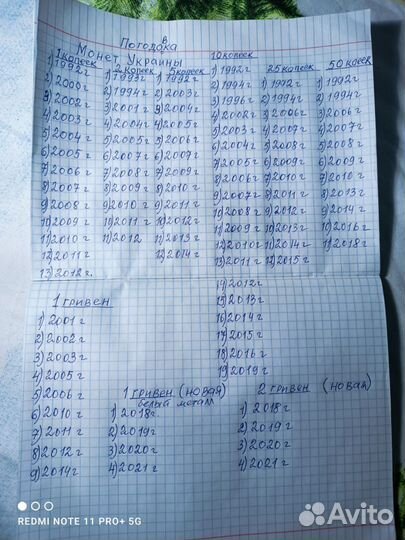 Погодовка
Монет Украины
1 копеек
1) 1992 г
2) 2000 г
3) 2002 г
4) 2003 г
5) 2004 г
6) 2005 г
7) 2006 г
8) 2007 г
9) 2008 г
10) 2009 г
11) 2010 г
12) 2011 г
13) 2012 г.
2 копеек
1) 1993 г
2) 1994 г
3) 2001 г
4) 2004 г
5) 2005 г
6) 2007 г
7) 2008 г
8) 2009 г
9) 2010 г
10) 2011 г
11) 2012
5 копеек
1) 1992 г
2) 2003 г
3) 2004 г
4) 2005 г
5) 2006 г
6) 2007 г
7) 2009 г
8) 2010 г
9) 2011 г
10) 2012 г
11) 2013 г
12) 2014 г
10 копеек
1) 1992 г
2) 1994 г
3) 1996 г
4) 2002 г
5) 2003 г
6) 2004 г
7) 2005 г
8) 2006 г
9) 2007 г
10) 2008 г
11) 2009 г
12) 2010 г
13) 2011 г
14) 2012 г
15) 2013 г
16) 2014 г
17) 2015 г
18) 2016 г
19) 2019 г
25 копеек
1) 1992 г
2) 1994 г
3) 2006 г
4) 2007 г
5) 2008 г
6) 2009 г
7) 2010 г
8) 2011 г
9) 2012 г
10) 2013 г
11) 2014 г
12) 2015 г
50 копеек
1) 1992 г
2) 1994 г
3) 2006 г
4) 2007 г
5) 2008 г
6) 2009 г
7) 2010 г
8) 2013 г
9) 2014 г
10) 2016 г
11) 2018 г
1 гривен
1) 2001 г
2) 2002 г
3) 2003 г
4) 2005 г
5) 2006 г
6) 2010 г
7) 2011 г
8) 2012 г
9) 2014 г
1 гривен (новая)
белый металл
1) 2018 г
2) 2019 г
3) 2020 г
4) 2021 г
2 гривен (новая)
1) 2018 г
2) 2019 г
3) 2020 г
4) 2021 г
REDMI NOTE 11 PRO+ 5G
Avito